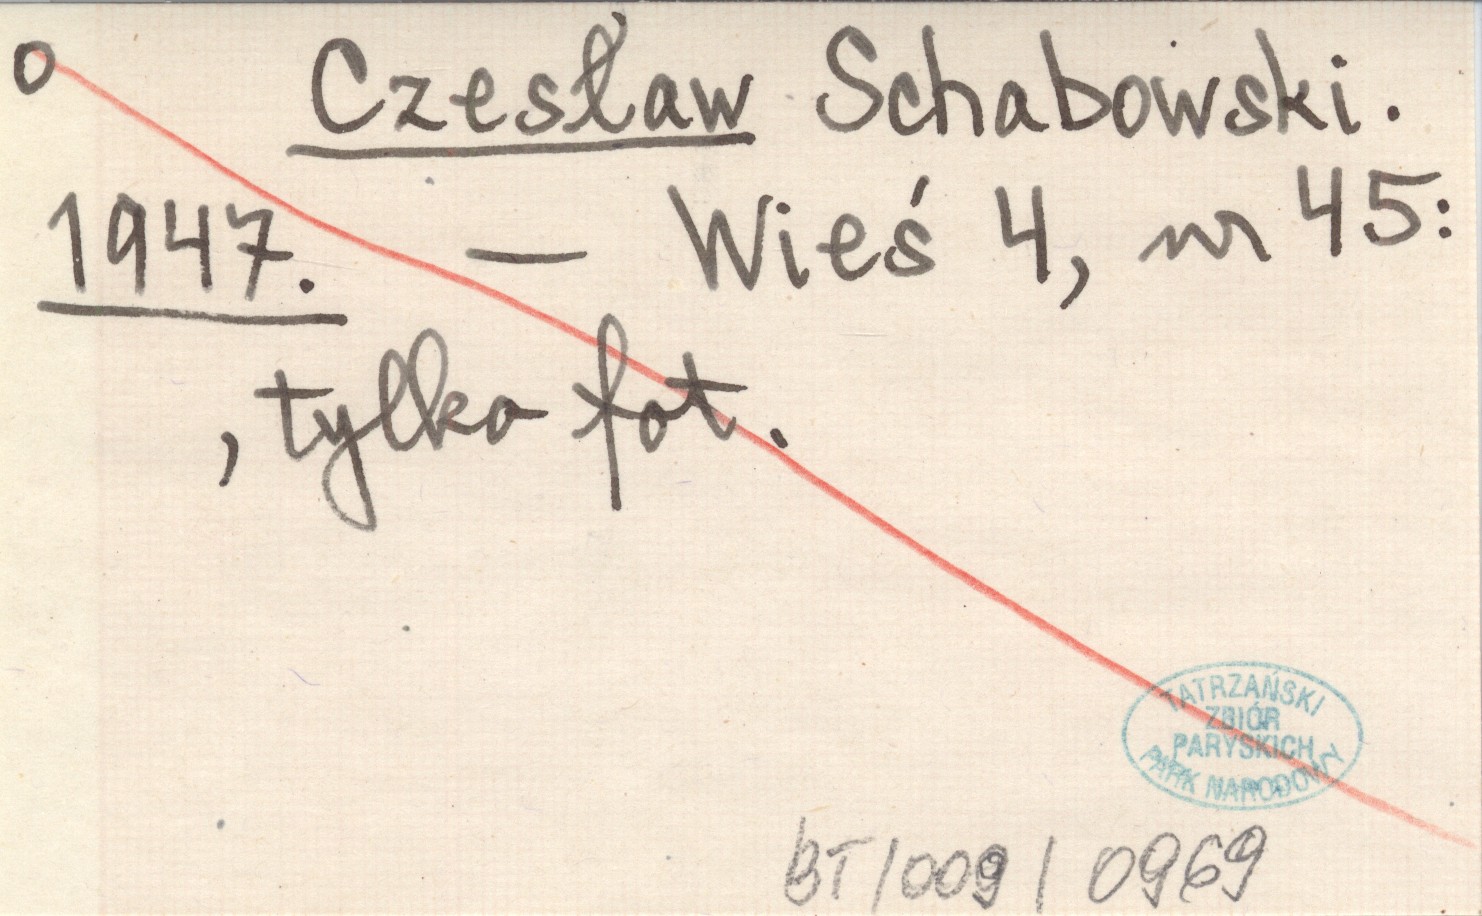 o Czesław Schabowski.
1947. — Wieś 4, nr 45:
, tylko fot.
TATRZAŃSKI
ZBIÓR
PARYSKICH
PARK NARODOWY
BT/009/0969